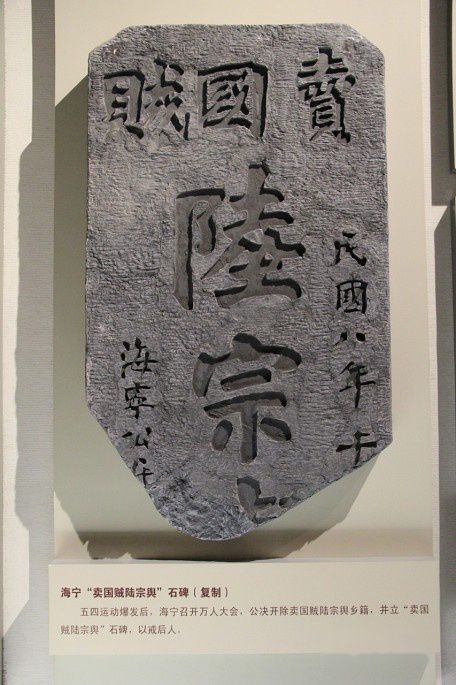 賣國賊
民國八年
陸宗
海寧公
海宁“卖国贼陆宗舆”石碑（复制）
五四运动爆发后，海宁召开万人大会，公决开除卖国贼陆宗舆乡籍，并立“卖国
贼陆宗舆”石碑，以戒后人。